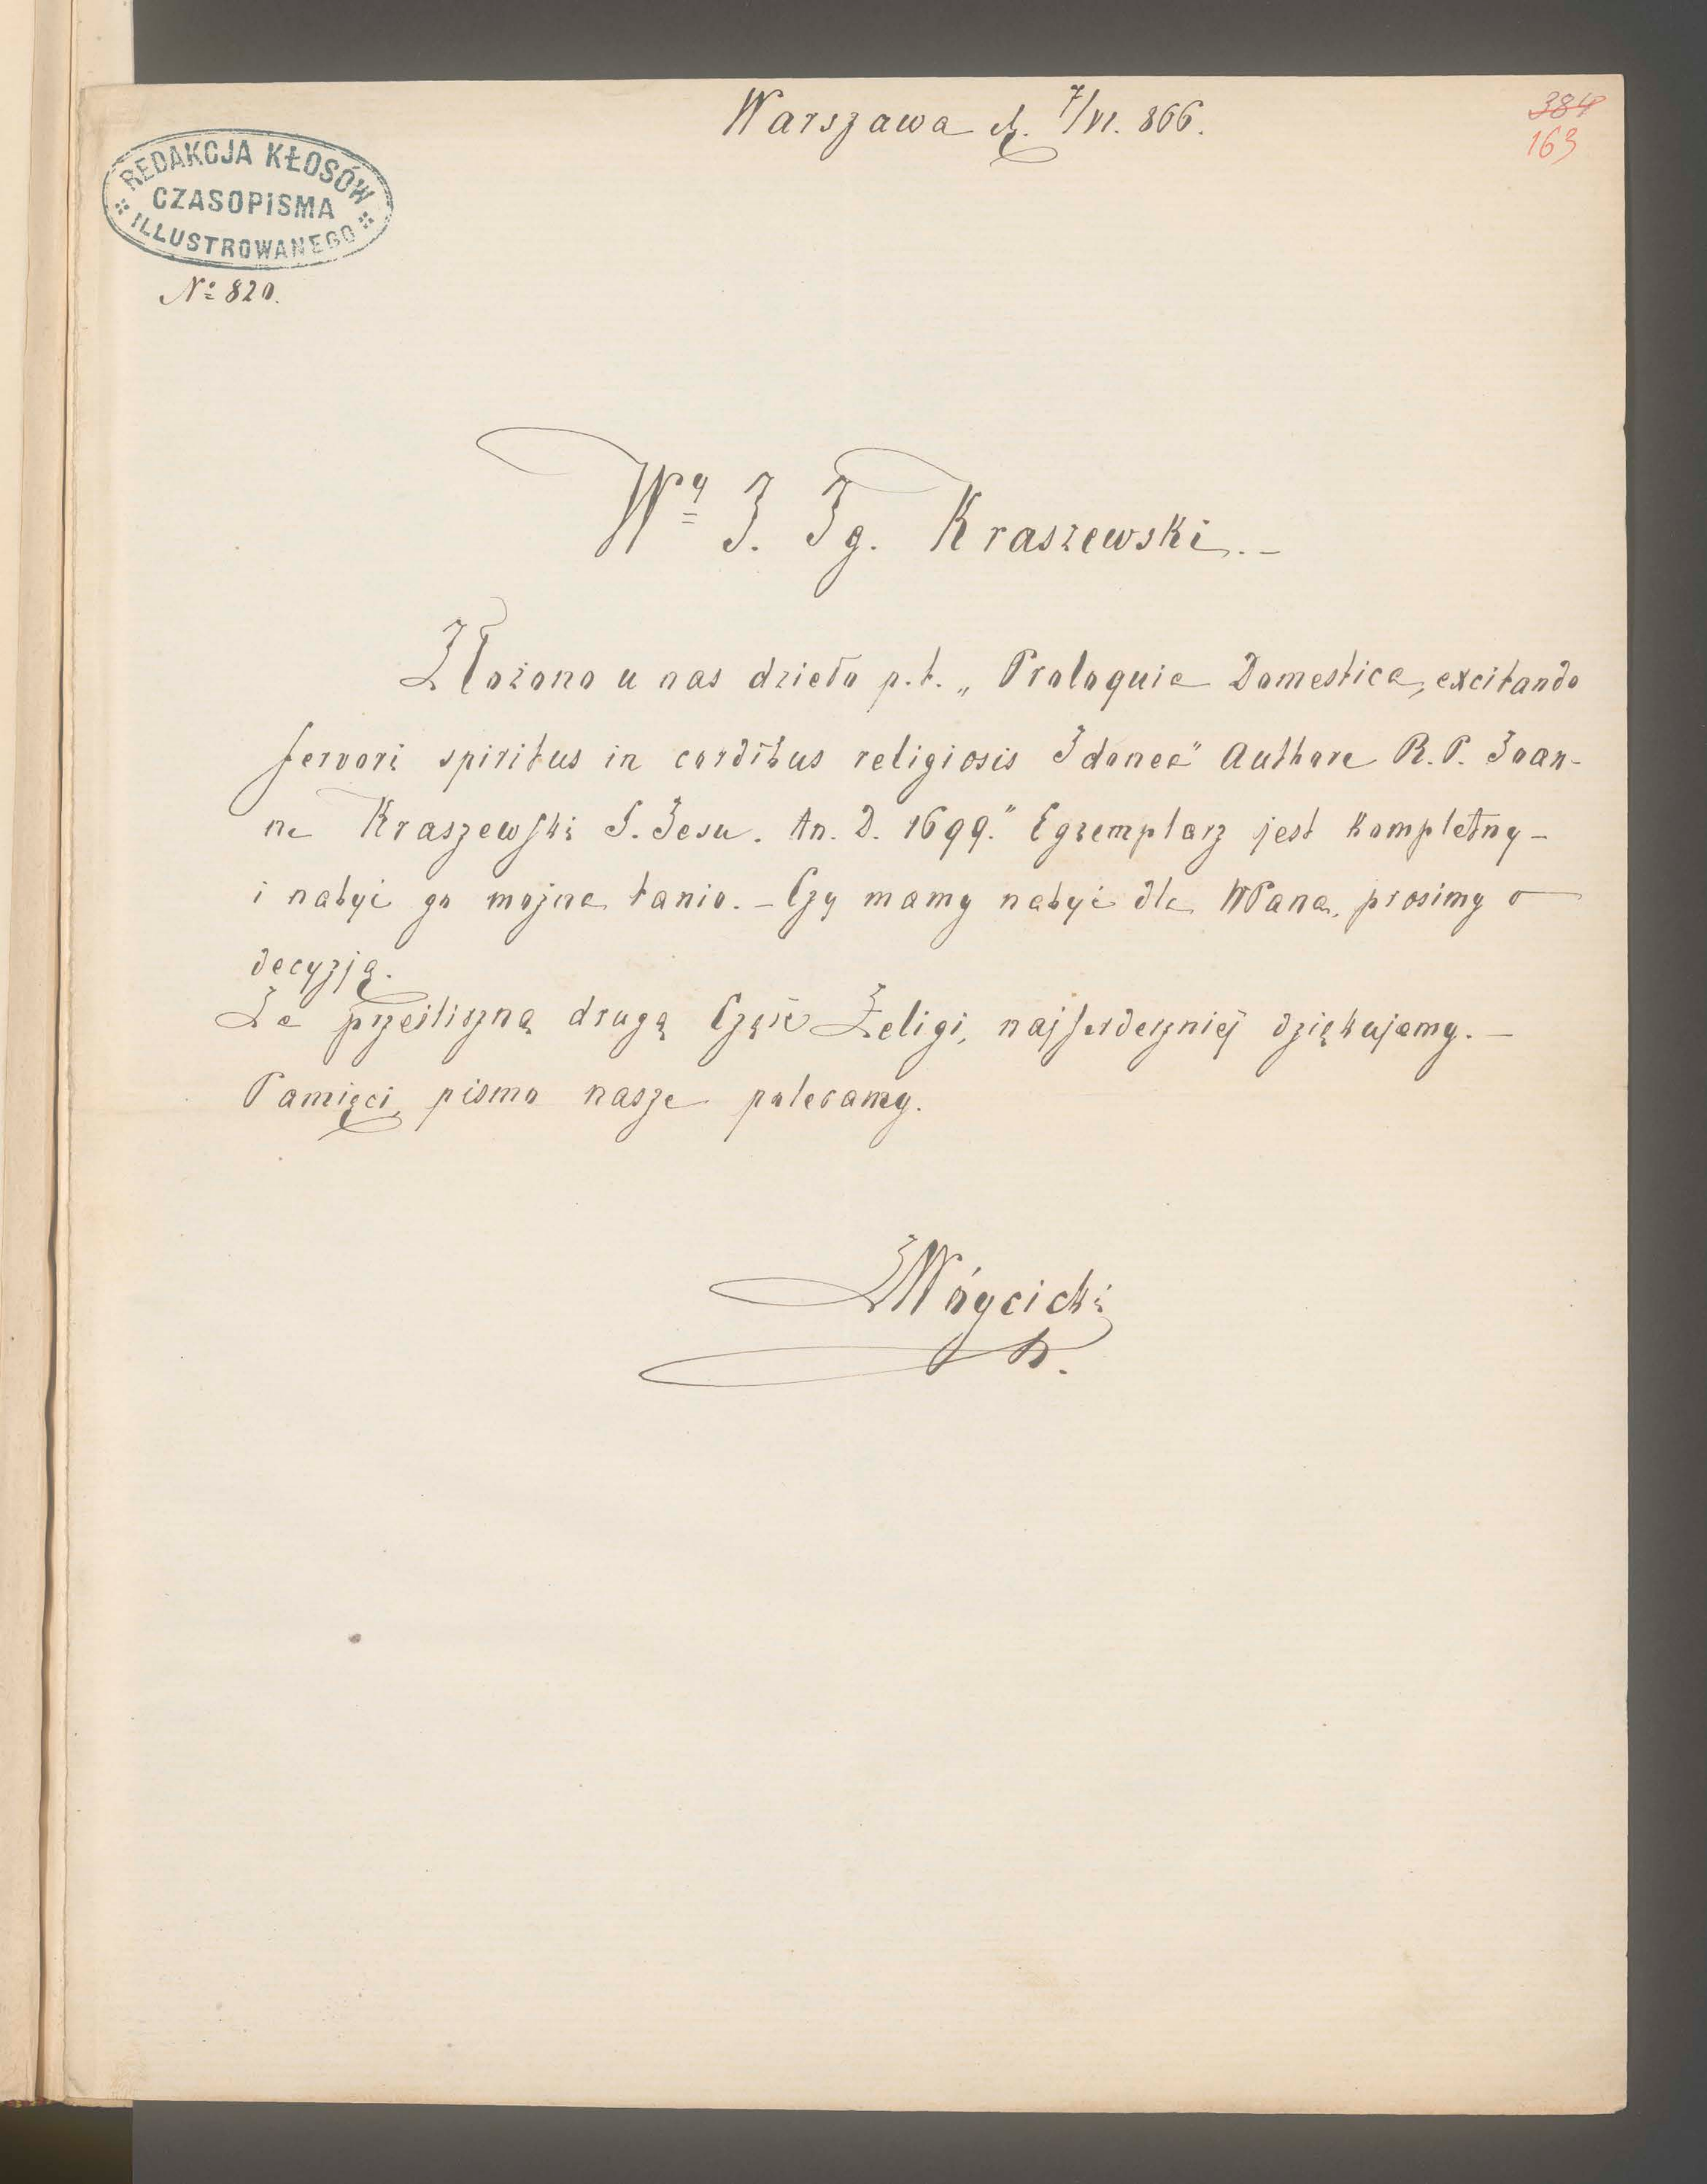 Warszawa d. 7/VI. 866.
384
163
REDAKCJA KŁOSÓW
CZASOPISMA
ILLUSTROWANEGO
№ 820.
Wy J. Ig. Kraszewski. –
Złożono u nas dzieło p.t. „Proloquia Domestica, excitando
fervori spiritus in cordibus religiosis Idonea" Authore R. P. Joan-
ne Kraszewski S. Jesu. An. D. 1699." Egzemplarz jest kompletny –
i nabyć go można tanio. – Czy mamy nabyć dla WPana, prosimy o
decyzją.
Za prześliczną drugą Część Żeligi, najserdeczniéj dziękujemy. –
Pamięci pismo nasze polecamy.
Wóycicki